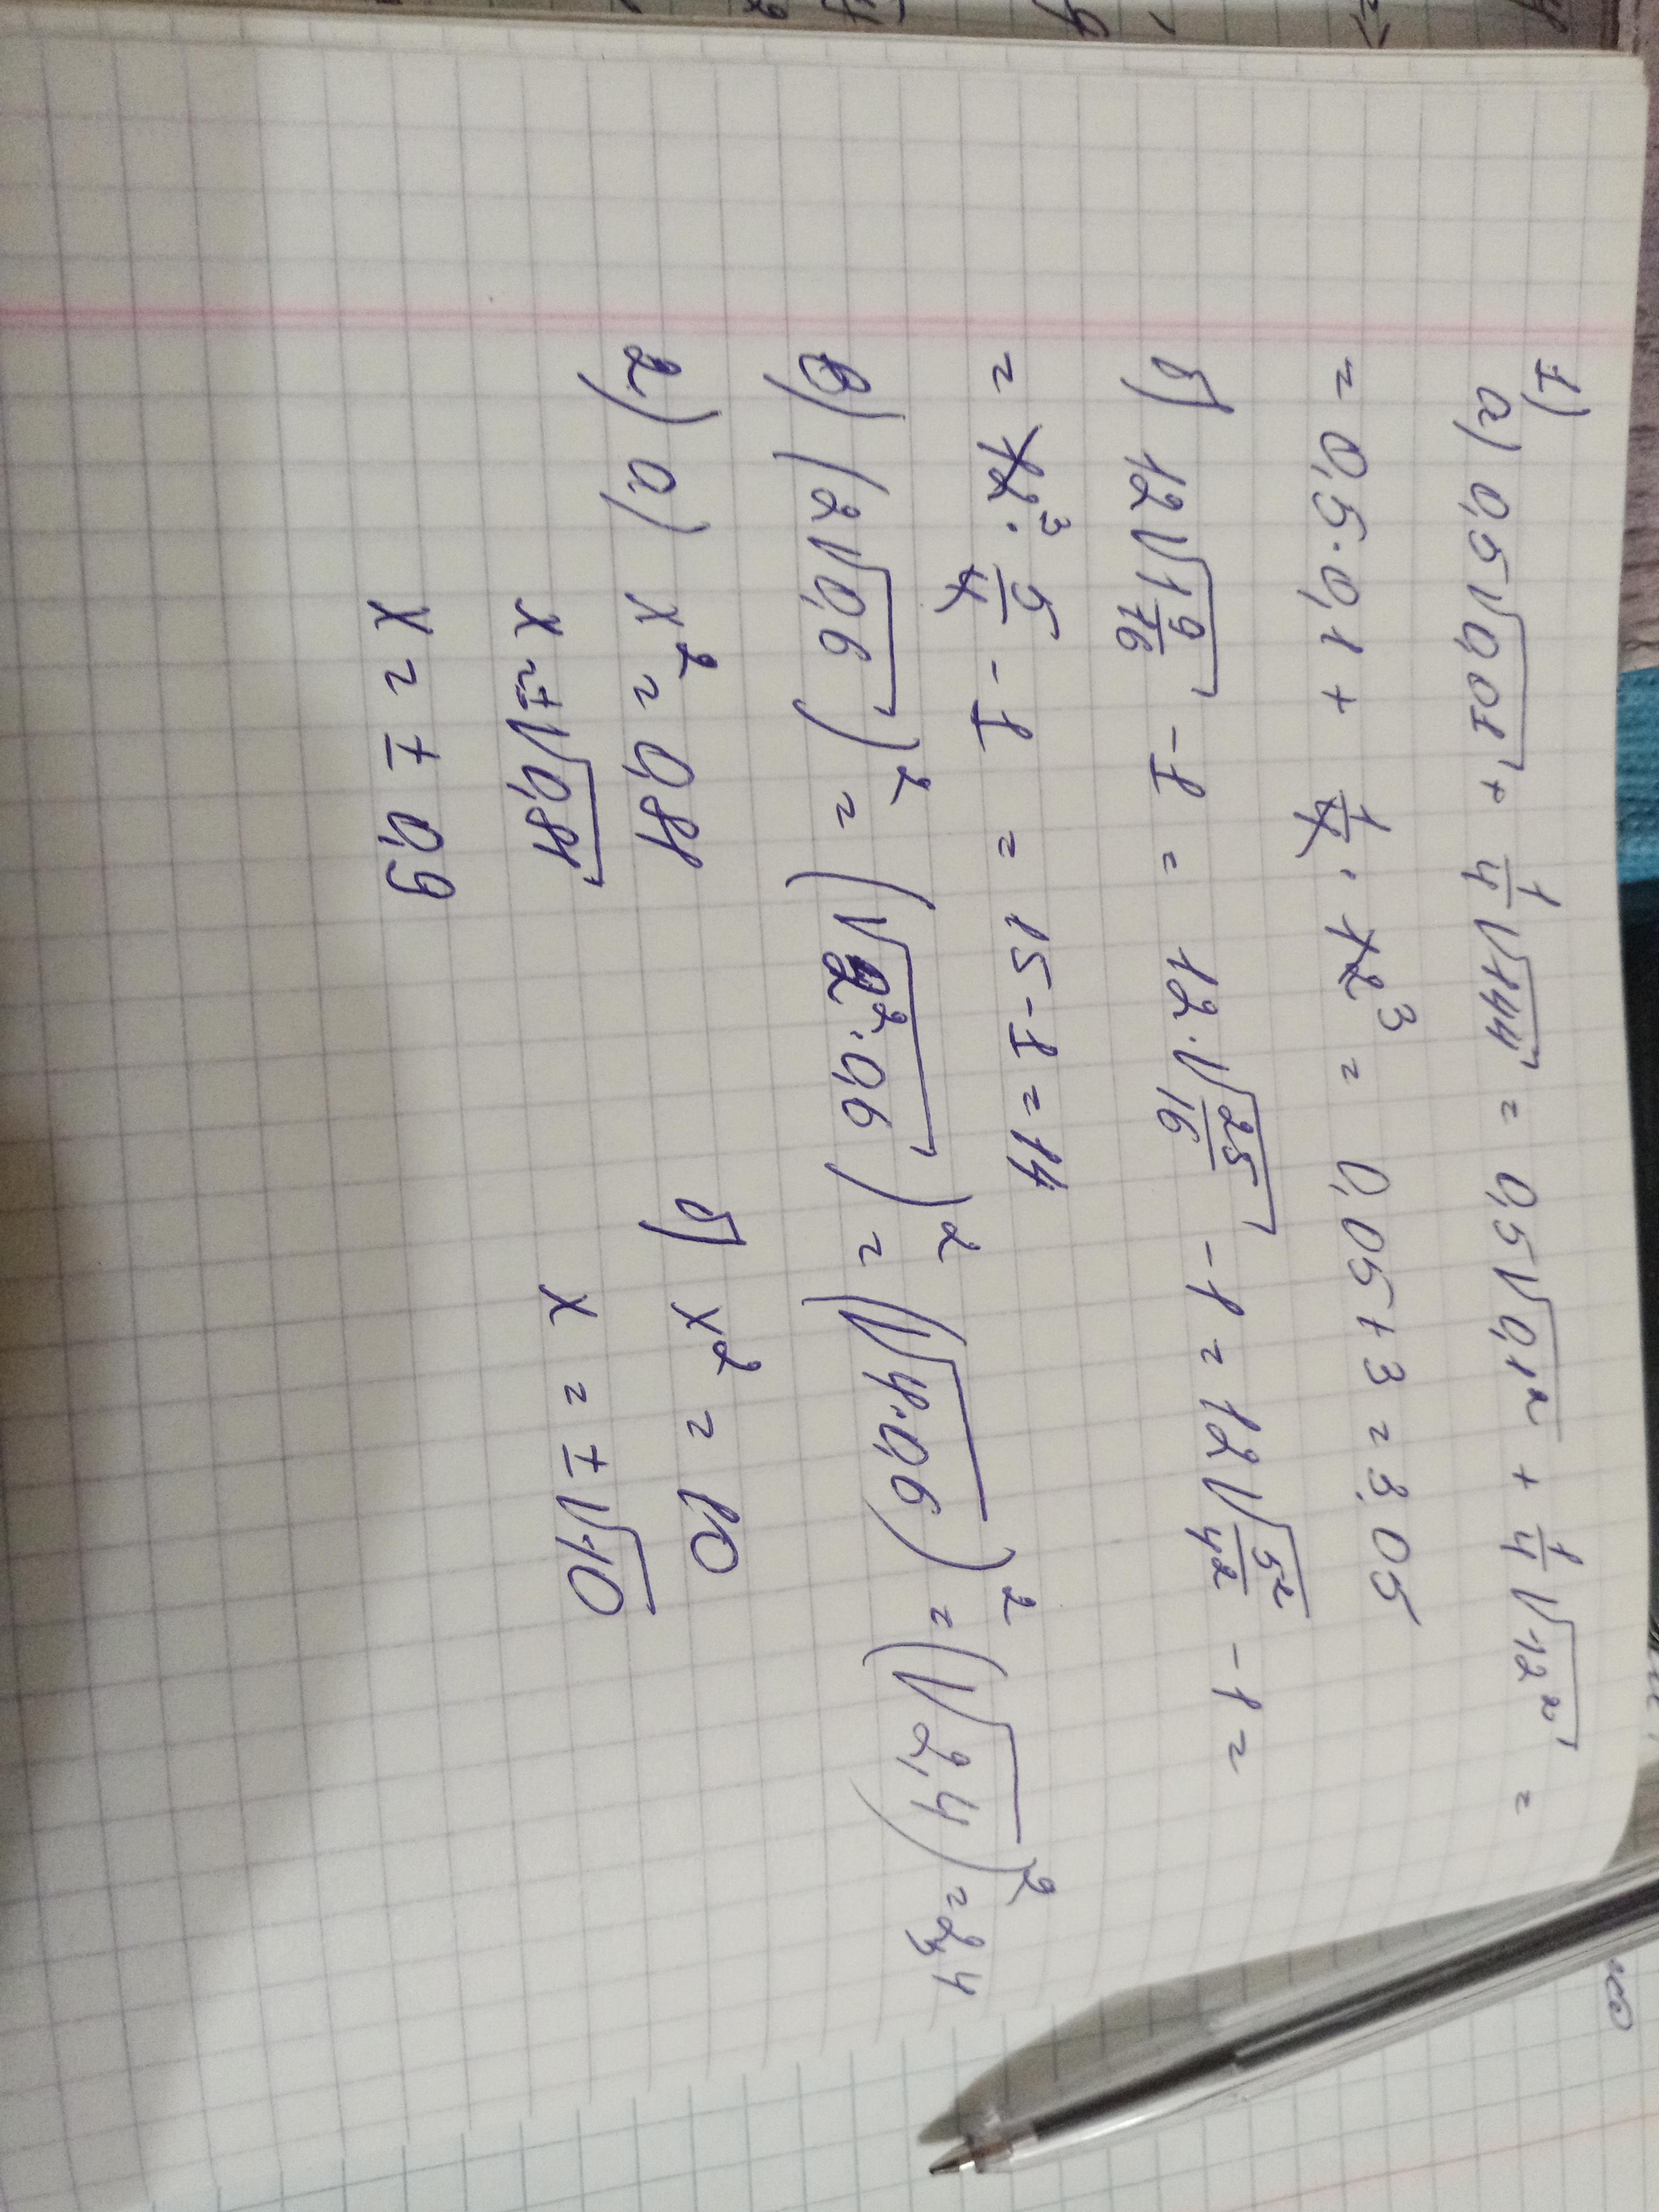 1)
а) 0,5√0,01 + 1/4 √144 = 0,5√0,1² + 1/4 √12² =
= 0,5 · 0,1 + 1/4 · 12³ = 0,05 + 3 = 3,05
б) 12√1 9/16 - 1 = 12 · √25/16 - 1 = 12√5²/4² - 1 =
= 12³ · 5/4 - 1 = 15 - 1 = 14
в) (2√0,6)² = (√2² · 0,6)² = (√4 · 0,6)² = (√2,4)² = 2,4
2) а) x² = 0,81 б) x² = 10
x = ±√0,81 x = ±√10
x = ±0,9